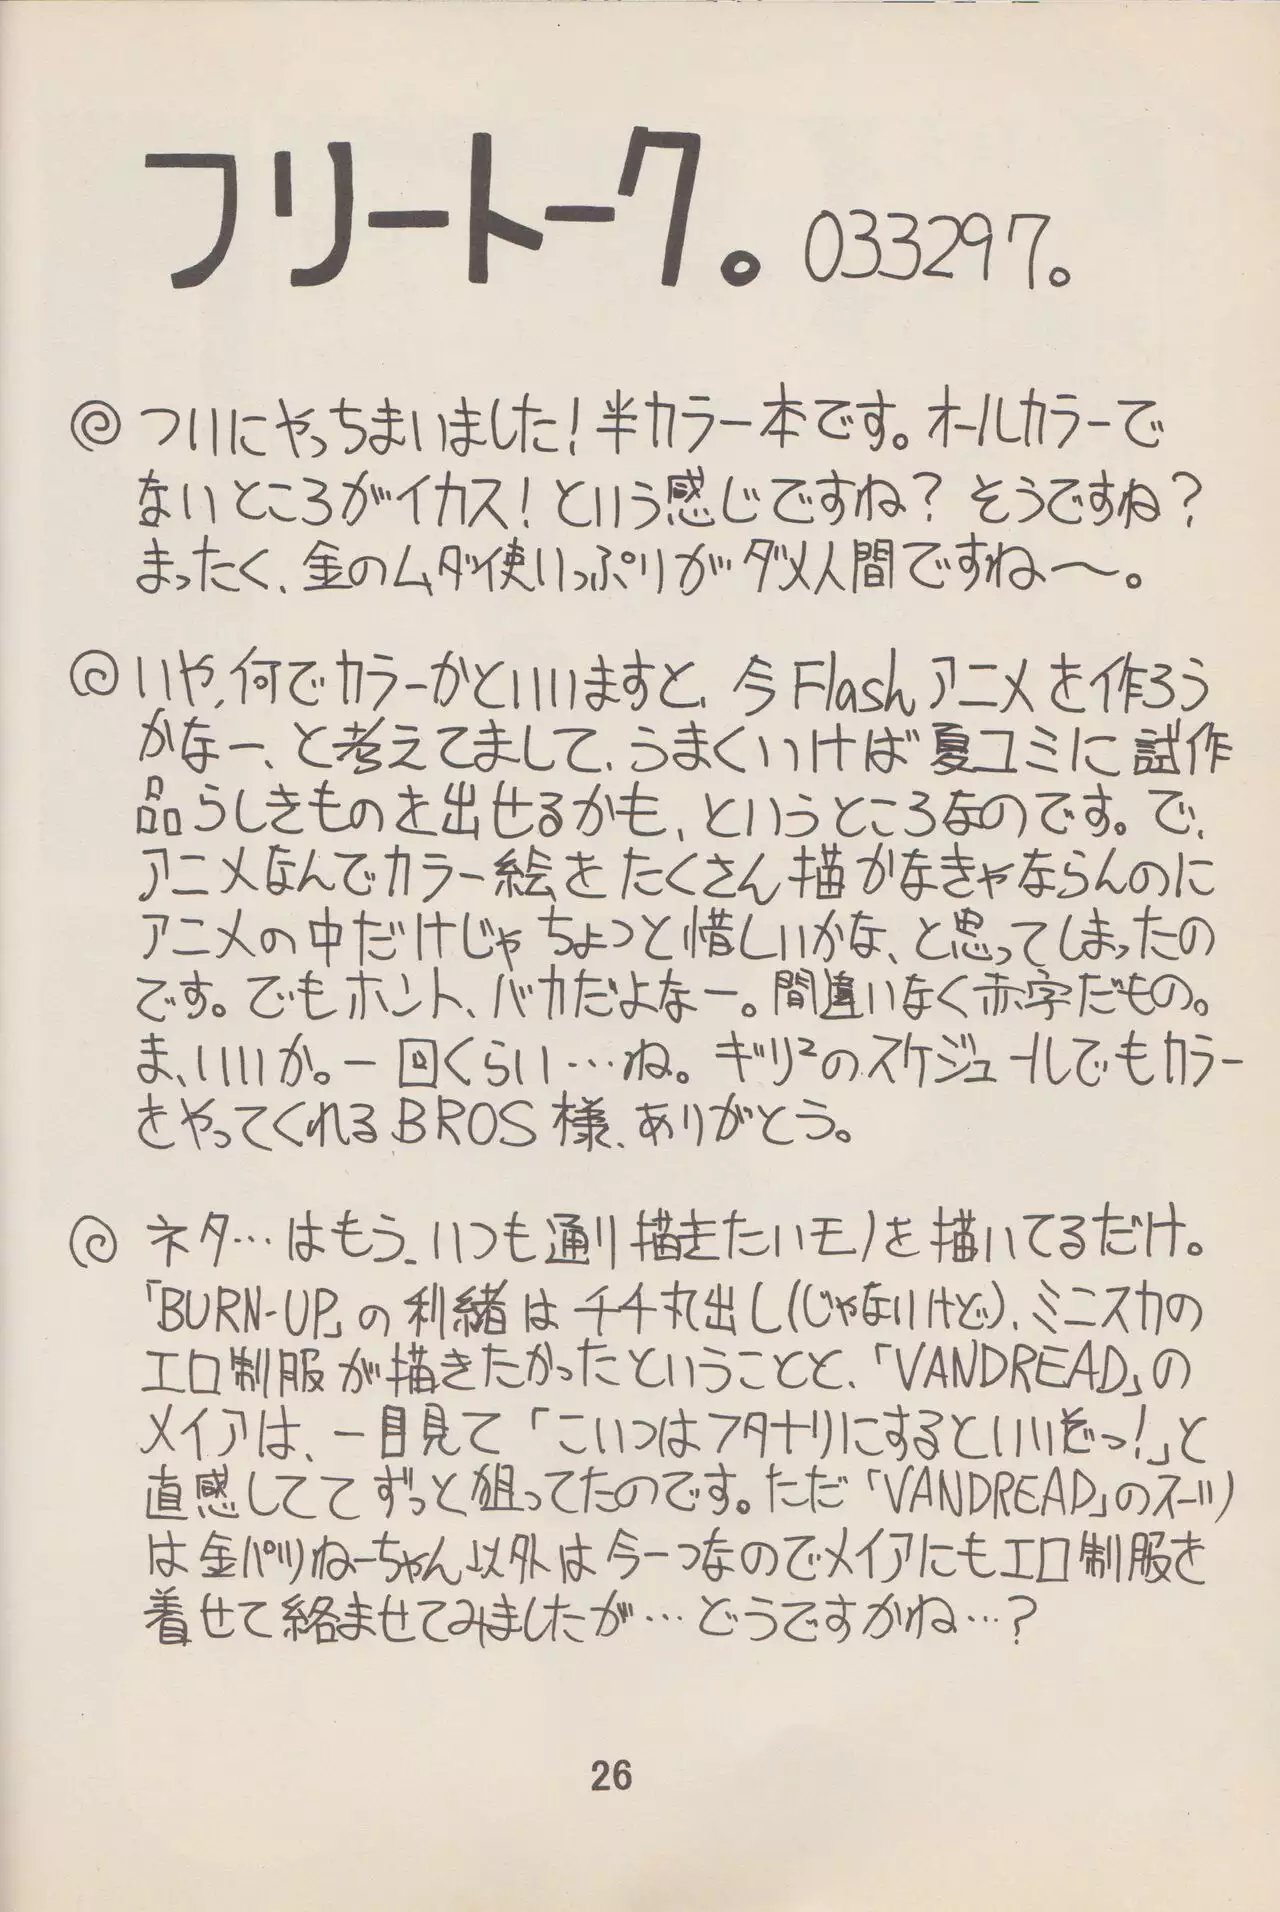 フリートーク。033297。
◎ ついにやっちまいました!半カラー本です。オールカラーで
ないところがイカス!という感じですね?そうですね?
まったく、金のムダ使いっぷりがダメ人間ですね〜。
◎ いや、何でカラーかといいますと、今Flashアニメを作ろう
かなー、と考えてまして、うまくいけば夏コミに試作
品らしきものを出せるかも、というところなのです。で、
アニメなんでカラー絵をたくさん描かなきゃならんのに
アニメの中だけじゃちょっと惜しいかな、と思ってしまったの
です。でもホント、バカだよなー。間違いなく赤字だもの。
ま、いいか。一回くらい…ね。ギリ²のスケジュールでもカラー
をやってくれるBROS様、ありがとう。
◎ ネタ…はもう、いつも通り描きたいモノを描いてるだけ。
「BURN-UP」の利緒はチチ丸出し(じゃないけど)、ミニスカの
エロ制服が描きたかったということと、「VANDREAD」の
メイアは、一目見て「こいつはフタナリにするといいぞっ!」と
直感しててずっと狙ってたのです。ただ「VANDREAD」のスーツ
は金パツねーちゃん以外は今一つなのでメイアにもエロ制服を
着せて絡ませてみましたが…どうですかね…?
26